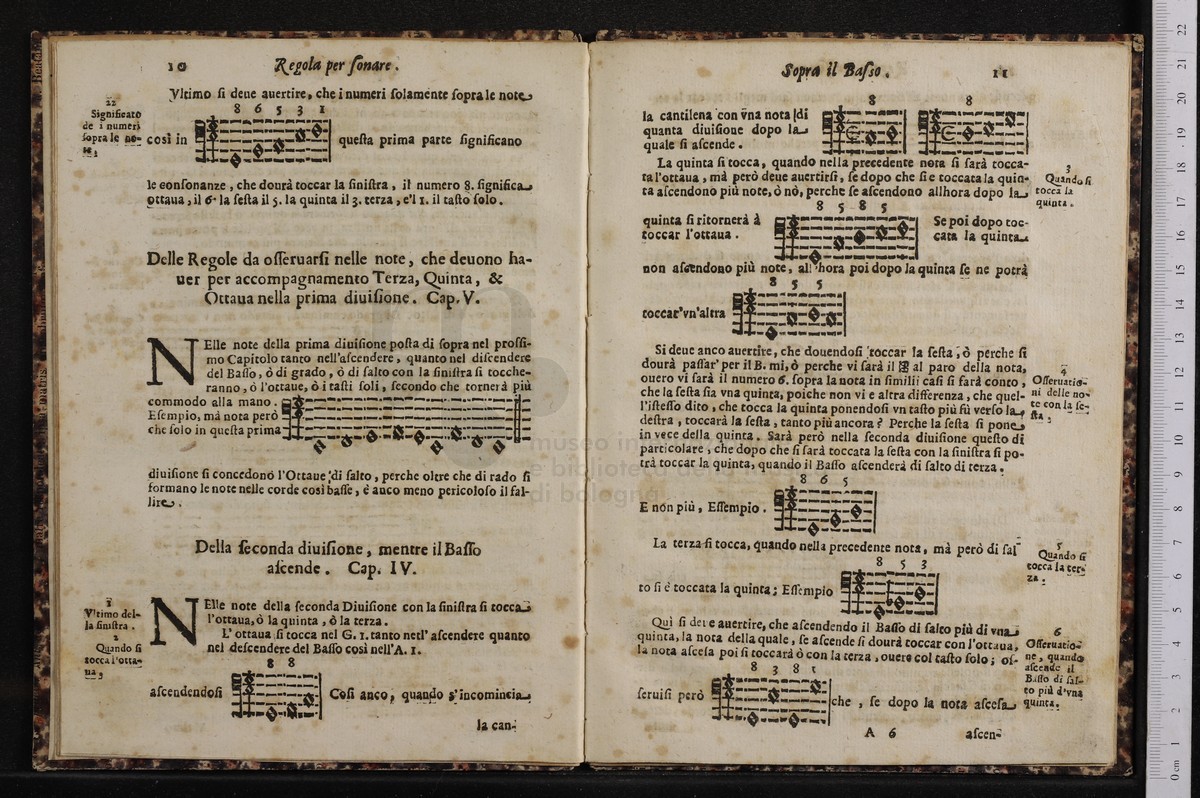 10
Regola per ſonare.
Vltimo ſi deue auertire, che i numeri ſolamente ſopra le note
22
Significato
de i numeri
ſopra le no-
te;
8 6 5 3 1
così in queſta prima parte ſignificano
le conſonanze, che dourà toccar la ſiniſtra, il numero 8. ſignifica
ottaua, il 6. la ſeſta il 5. la quinta il 3. terza, e'l 1. il taſto ſolo.
Delle Regole da oſſeruarſi nelle note, che deuono ha-
uer per accompagnamento Terza, Quinta, &
Ottaua nella prima diuiſione. Cap. V.
NElle note della prima diuiſione poſta di ſopra nel proſſi-
mo Capitolo tanto nell'aſcendere, quanto nel diſcendere
del Baſſo, ò di grado, ò di ſalto con la ſiniſtra ſi tocche-
ranno, ò l'ottaue, ò i taſti ſoli, ſecondo che tornerà più
commodo alla mano.
Eſempio, mà nota però
che ſolo in queſta prima
diuiſione ſi concedono l'Ottaue di ſalto, perche oltre che di rado ſi
formano le note nelle corde così baſſe, è anco meno pericoloſo il fal-
lire.
Della ſeconda diuiſione, mentre il Baſſo
aſcende. Cap. IV.
1
Vltimo del-
la ſiniſtra.
2
Quando ſi
tocca l'otta-
ua;
NElle note della ſeconda Diuiſione con la ſiniſtra ſi tocca
l'ottaua, ò la quinta, ò la terza.
L'ottaua ſi tocca nel G. 1. tanto nell'aſcendere quanto
nel deſcendere del Baſſo così nell'A. 1.
8 8
aſcendendoſi Coſi anco, quando s'incomincia
la can-
Sopra il Baſſo.
11
8 8
la cantilena con vna nota di
quanta diuiſione dopo la
quale ſi aſcende.
La quinta ſi tocca, quando nella precedente nota ſi ſarà tocca-
ta l'ottaua, mà però deue auertirſi, ſe dopo che ſi è toccata la quin-
ta aſcendono più note, ò nò, perche ſe aſcendono allhora dopo la
3
Quando ſi
tocca la
quinta.
8 5 8 5
quinta ſi ritornerà à
toccar l'ottaua.
Se poi dopo toc-
cata la quinta
non aſcendono più note, all'hora poi dopo la quinta ſe ne potrà
8 5 5
toccar'vn'altra
Si deue anco auertire, che douendoſi toccar la ſeſta, ò perche ſi
dourà paſſar' per il B. mi, ò perche vi ſarà il ♯ al paro della nota,
ouero vi ſarà il numero 6. ſopra la nota in ſimilii caſi ſi farà conto,
che la ſeſta ſia vna quinta, poiche non vi e altra differenza, che quel-
l'iſteſſo dito, che tocca la quinta ponendoſi vn taſto più sù verſo la
deſtra, toccarà la ſeſta, tanto più ancora? Perche la ſeſta ſi pone
in vece della quinta. Sarà però nella ſeconda diuiſione queſto di
particolare, che dopo che ſi ſarà toccata la ſeſta con la ſiniſtra ſi po-
trà toccar la quinta, quando il Baſſo aſcenderà di ſalto di terza.
4
Oſſeruatio-
ni delle no-
te con la ſe-
ſta.
8 6 5
E non più, Eſſempio.
La terza ſi tocca, quando nella precedente nota, mà però di ſal
5
Quando ſi
tocca la ter-
za.
8 5 3
to ſi è toccata la quinta; Eſſempio
Qui ſi deue auertire, che aſcendendo il Baſſo di ſalto più di vna
quinta, la nota della quale, ſe aſcende ſi dourà toccar con l'ottaua,
la nota aſceſa poi ſi toccarà ò con la terza, ouero col taſto ſolo; oſ-
6
Oſſeruatio-
ne, quando
aſcende il
Baſſo di ſal-
to più d'vna
quinta.
8 3 8 1
ſeruiſi però che, ſe dopo la nota aſceſa
A 6
aſcen-
museo in
e biblioteca della musica
di bologna